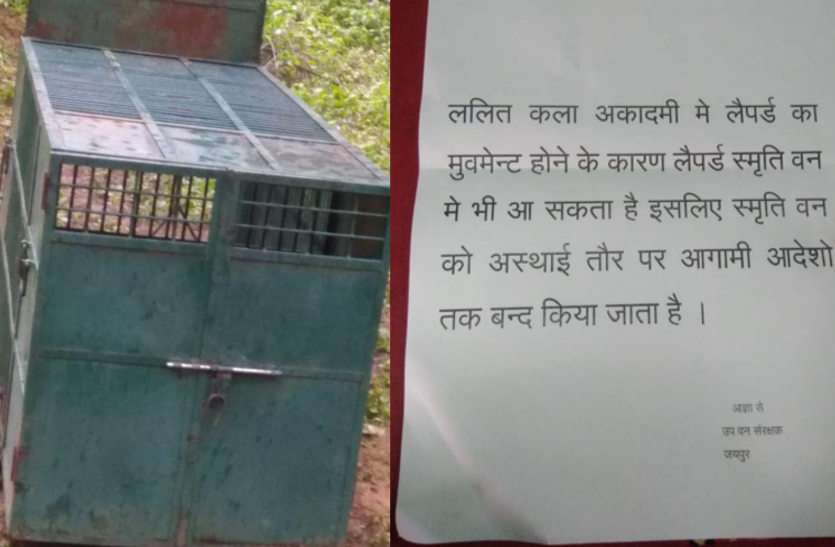 ललित कला अकादमी मे लैपर्ड का
मुवमेन्ट होने के कारण लैपर्ड स्मृति वन
मे भी आ सकता है इसलिए स्मृति वन
को अस्थाई तौर पर आगामी आदेशो
तक बन्द किया जाता है ।
आज्ञा से
उप वन संरक्षक
जयपुर